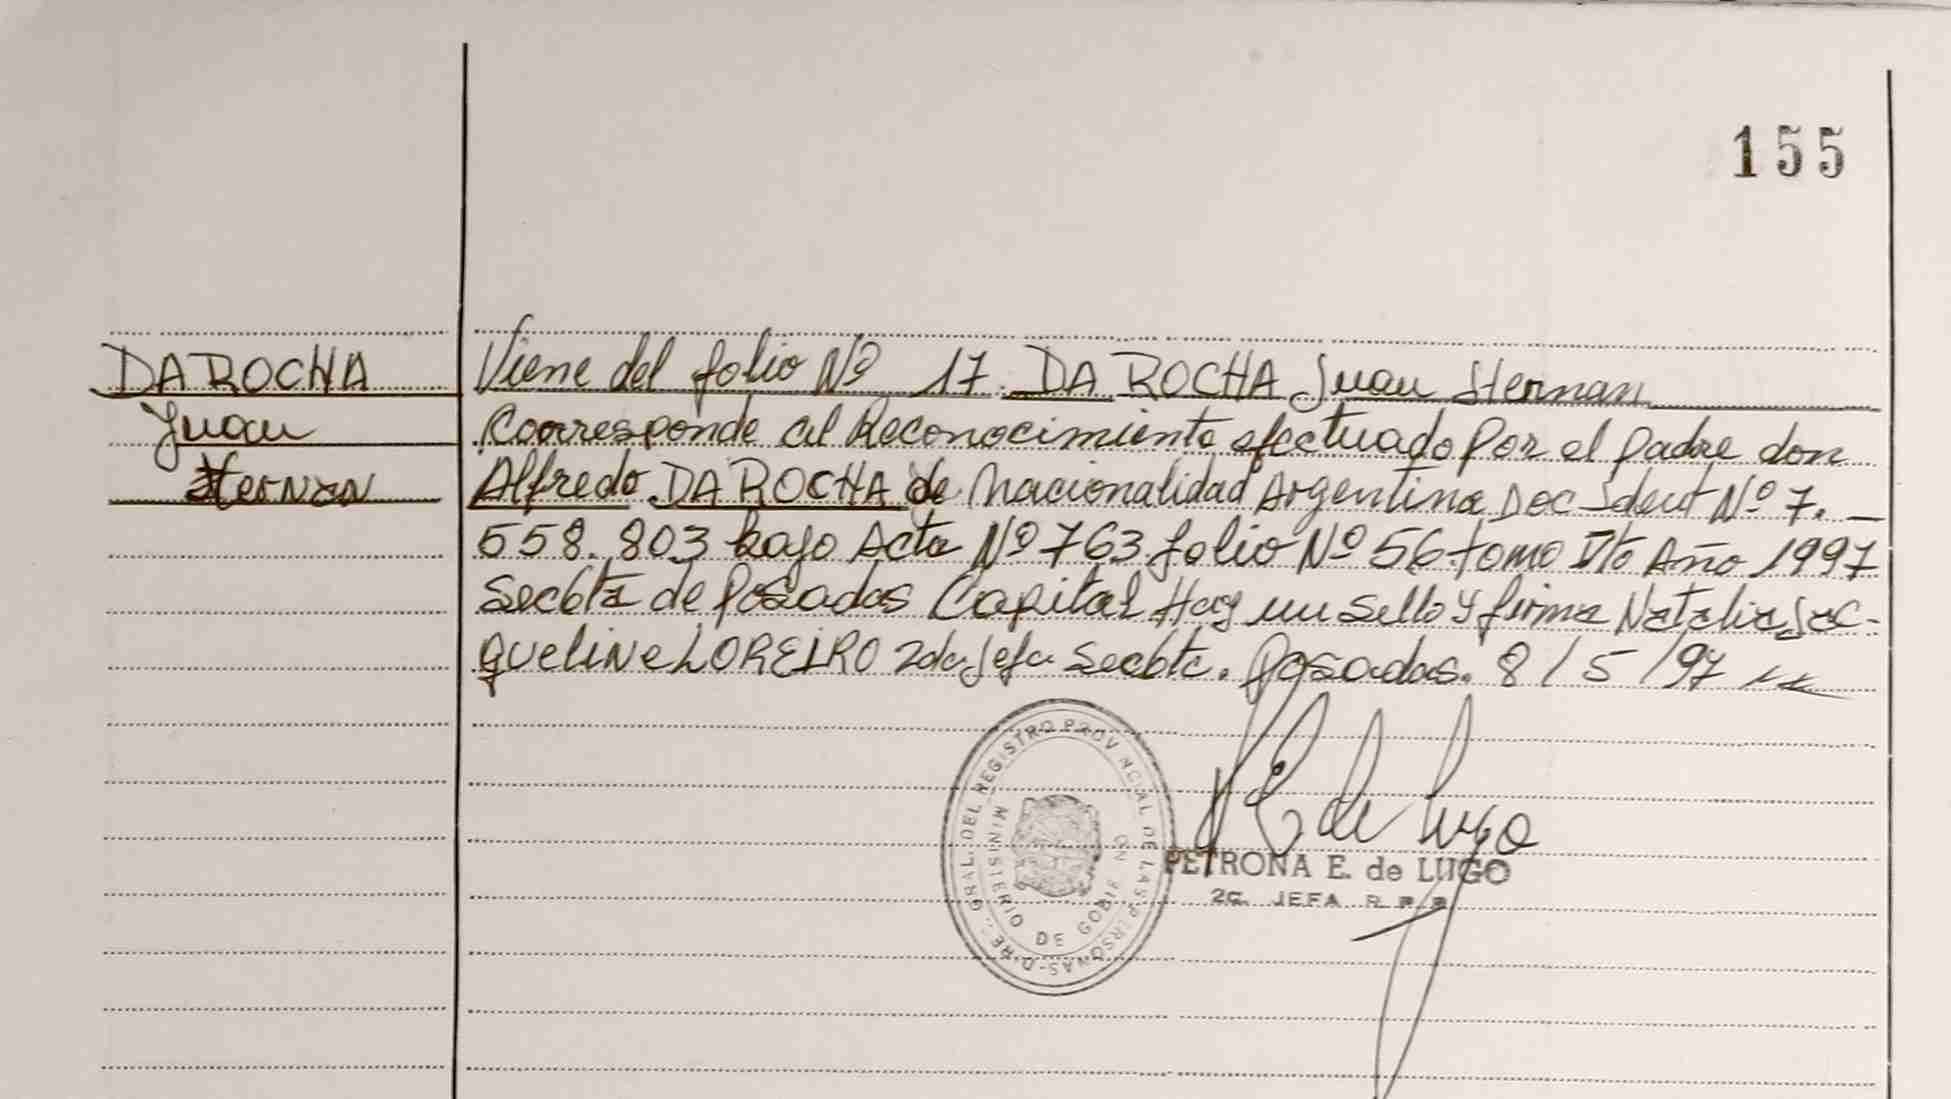 155
DA ROCHA
Juan
Hernan
Viene del folio Nº 17. DA ROCHA Juan Hernan
Coorresponde al Reconocimiento efectuado por el padre don
Alfredo DA ROCHA de Nacionalidad Argentina Doc Ident Nº 7.
558.803 bajo Acta Nº 763 folio Nº 56 tomo Año 1997
de Posadas Capital Hay un sello y firma Natalia Jac-
queline LOREIRO 2da Jefa Posadas. 8/5/97
P E de Lugo
PETRONA E. de LUGO
JEFA
GRAL. DEL REGISTRO PROVINCIAL DE LAS PERSONAS
MINISTERIO DE GOBIERNO